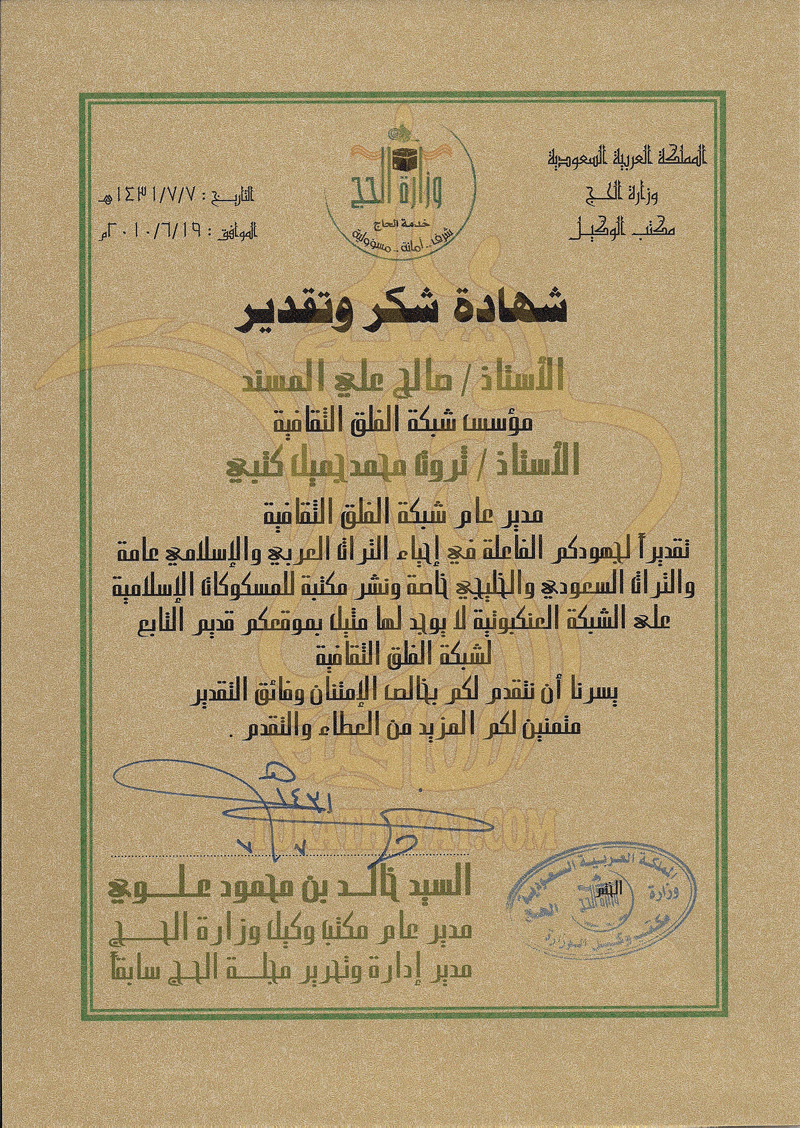 المملكة العربية السعودية
وزارة الحج
مكتب الوكيل
وزارة الحج
خدمة الحاج
شرف .. أمانة .. مسؤولية
التاريخ : ١٤٣١/٧/٧هـ
الموافق : ٢٠١٠/٦/١٩م
شهادة شكر وتقدير
الأستاذ / صالح علي المسند
مؤسس شبكة الفلق الثقافية
الأستاذ / ثروت محمدجميل كتبي
مدير عام شبكة الفلق الثقافية
تقديراً لجهودكم الفاعلة في إحياء التراث العربي والإسلامي عامة
والتراث السعودي والخليجي خاصة ونشر مكتبة للمسكوكات الإسلامية
على الشبكة العنكبوتية لا يوجد لها مثيل بموقعكم قديم التابع
لشبكة الفلق الثقافية
يسرنا أن نتقدم لكم بخالص الإمتنان وفائق التقدير
متمنين لكم المزيد من العطاء والتقدم .
١٤٣١هـ
٧ ٧
TURATHEYAT.COM
السيد خالد بن محمود علوي
مدير عام مكتب وكيل وزارة الحج
مدير إدارة وتحرير مجلة الحج سابقاً
المملكة العربية السعودية
وزارة الحج
الختم
مكتب وكيل الوزارة